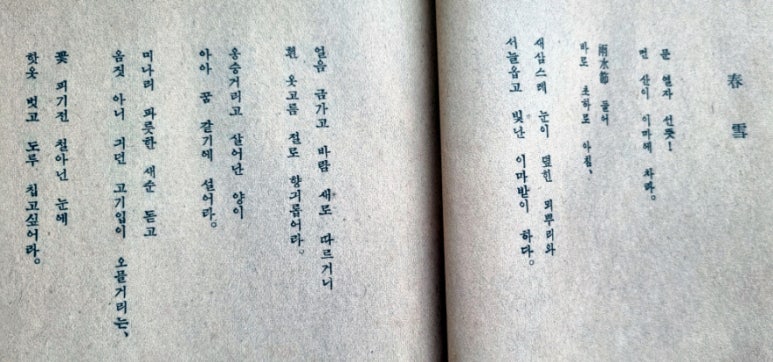 春雪
문 열자 선뜻!
먼 산이 이마에 차라.
雨水節 들어
바로 초하로 아츰,
새삼스레 눈이 덮힌 뫼뿌리와
서늘옵고 빛난 이마받이 하다.
얼음 금가고 바람 새로 따르거니
흰 옷고름 절로 향긔롭어라.
옹숭거리고 살어난 양이
아아 꿈 같기에 설어라.
미나리 파릇한 새순 돋고
옴짓 아니 긔던 고기입이 오믈거리는,
꽃 피기전 철아닌 눈에
핫옷 벗고 도로 칩고싶어라.